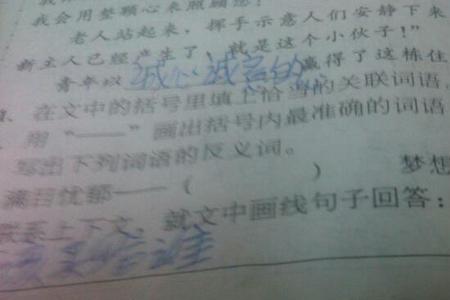 我会用整颗心来照顾您！"
老人站起来，挥手示意人们安静下来
新主人已经产生了，就是这个小伙子！"
青年以 诚心诚意的 赢得了这栋住
1. 在文中的括号里填上恰当的关联词语，
用"——"画出括号内最准确的词语
写出下列词语的反义词。
满面忧郁——（ ） 梦想
联系上下文，就文中画线句子回答：
谁